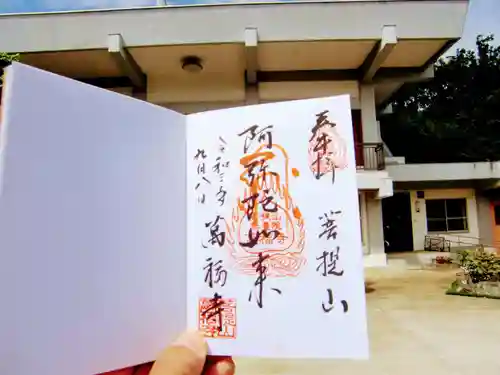 奉拝
菩提山
阿弥陀如来
萬福寺
令和三年
九月八日